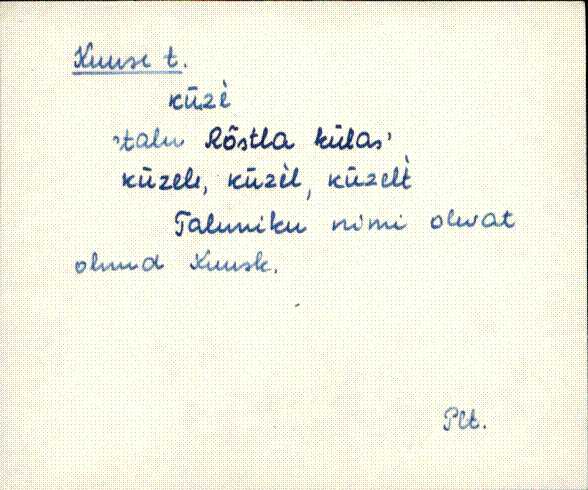 Kuuse t.
kūzè
'talu Rõstla külas'
kūzele, kūzèl, kūzelt̀
Taluniku nimi olevat
olnud Kuusk.
Plt.